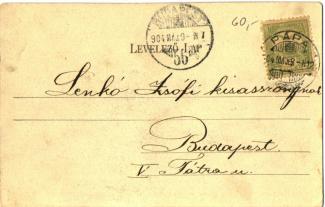 60,-
LEVELEZŐ LAP
PÁPA
Lenkó Zsófi kisasszonynak
Budapest.
V Tátra u.